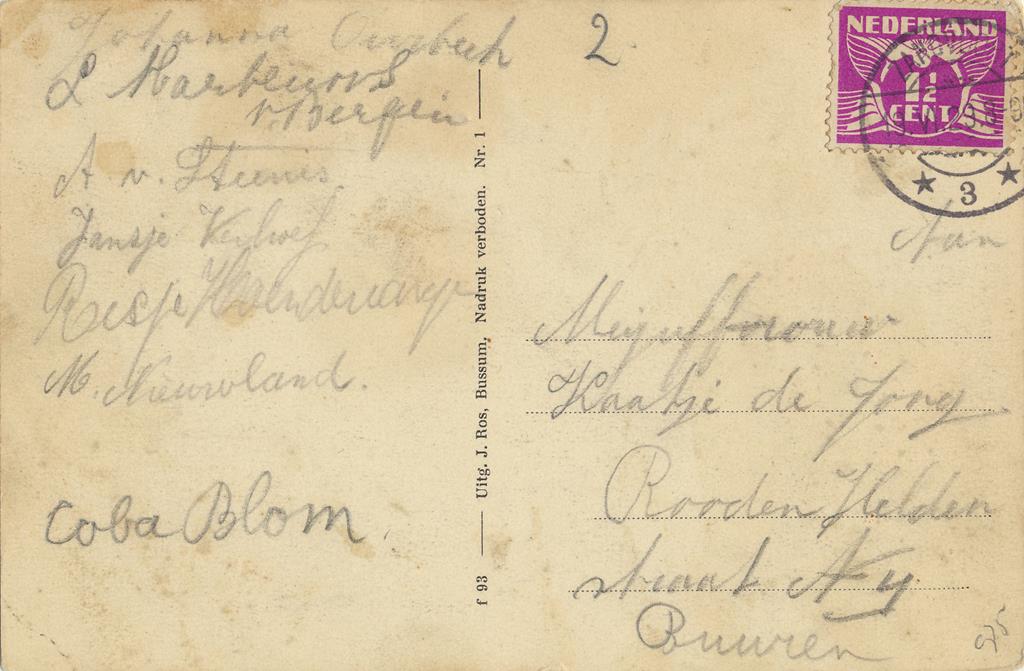 Johanna
L Martenors
v. Bergein
A v.
Jansje Kerlwef
Resje
M. Nieuwland.
Coba Blom
f 93 — Uitg. J. Ros, Bussum, Nadruk verboden. Nr. 1 —
2
NEDERLAND
2½
CENT
3
Aan
Mejuffrouw
Kaatje de Jong
Rooden Helden
straat
Buuren